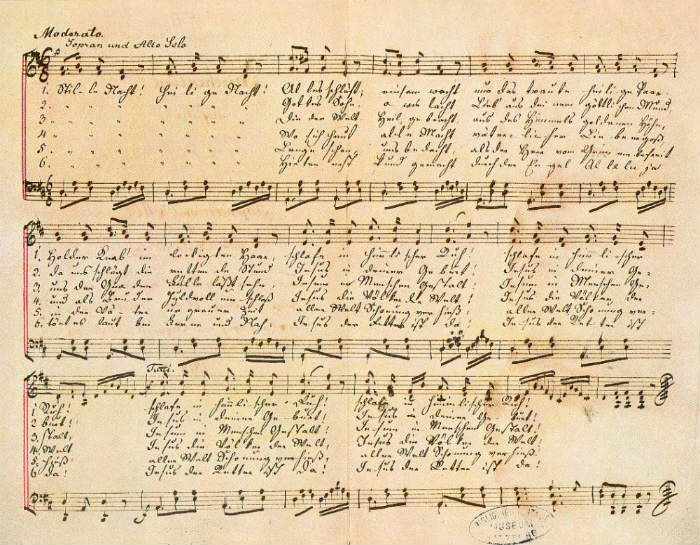 Moderato.
Sopran und Alto Solo
1. Stille Nacht! heilige Nacht! Alles schläft; einsam wacht nur das traute heilige Paar.
2. " " " " " " Gottes Sohn, o wie lacht Lieb aus deinem göttlichen Mund
3. " " " " " " Die der Welt Heil gebracht aus des Himmels goldenen Höhn,
4. " " " " " " Wo sich heut alle Macht väterlicher Liebe ergoß,
5. " " " " " " Lange schon uns bedacht, als der Herr vom Grimme befreit
6. " " " " " " Hirten erst kund gemacht durch der Engel Alleluja
1. Holder Knab' im lockigten Haar, schlafe in himmlischer Ruh! schlafe in himmlischer
2. da uns schlägt die rettende Stund Jesus in deiner Geburt! Jesus in deiner Ge-
3. uns der Gnaden Fülle läßt sehn, Jesum in Menschen Gestalt! Jesum in Menschen Ge-
4. und als Bruder huldvoll umschloß Jesus die Völker der Welt! Jesus die Völker der
5. in der Väter urgrauer Zeit aller Welt Schonung verhieß, aller Welt Schonung ver-
6. tönt es laut bei Ferne und Nah, Jesus der Retter ist da! Jesus der Retter ist
Tutti.
1 Ruh! schlafe in himmlischer Ruh! schlafe in himmlischer Ruh!
2 burt! Jesus in deiner Geburt! Jesus in deiner Geburt!
3. stalt, Jesum in Menschen Gestalt! Jesum in Menschen Gestalt!
4. Welt Jesus die Völker der Welt, Jesus die Völker der Welt!
5. hieß. aller Welt Schonung verhieß, aller Welt Schonung verhieß.
6 da! Jesus der Retter ist da! Jesus der Retter ist da!
MUSEUM